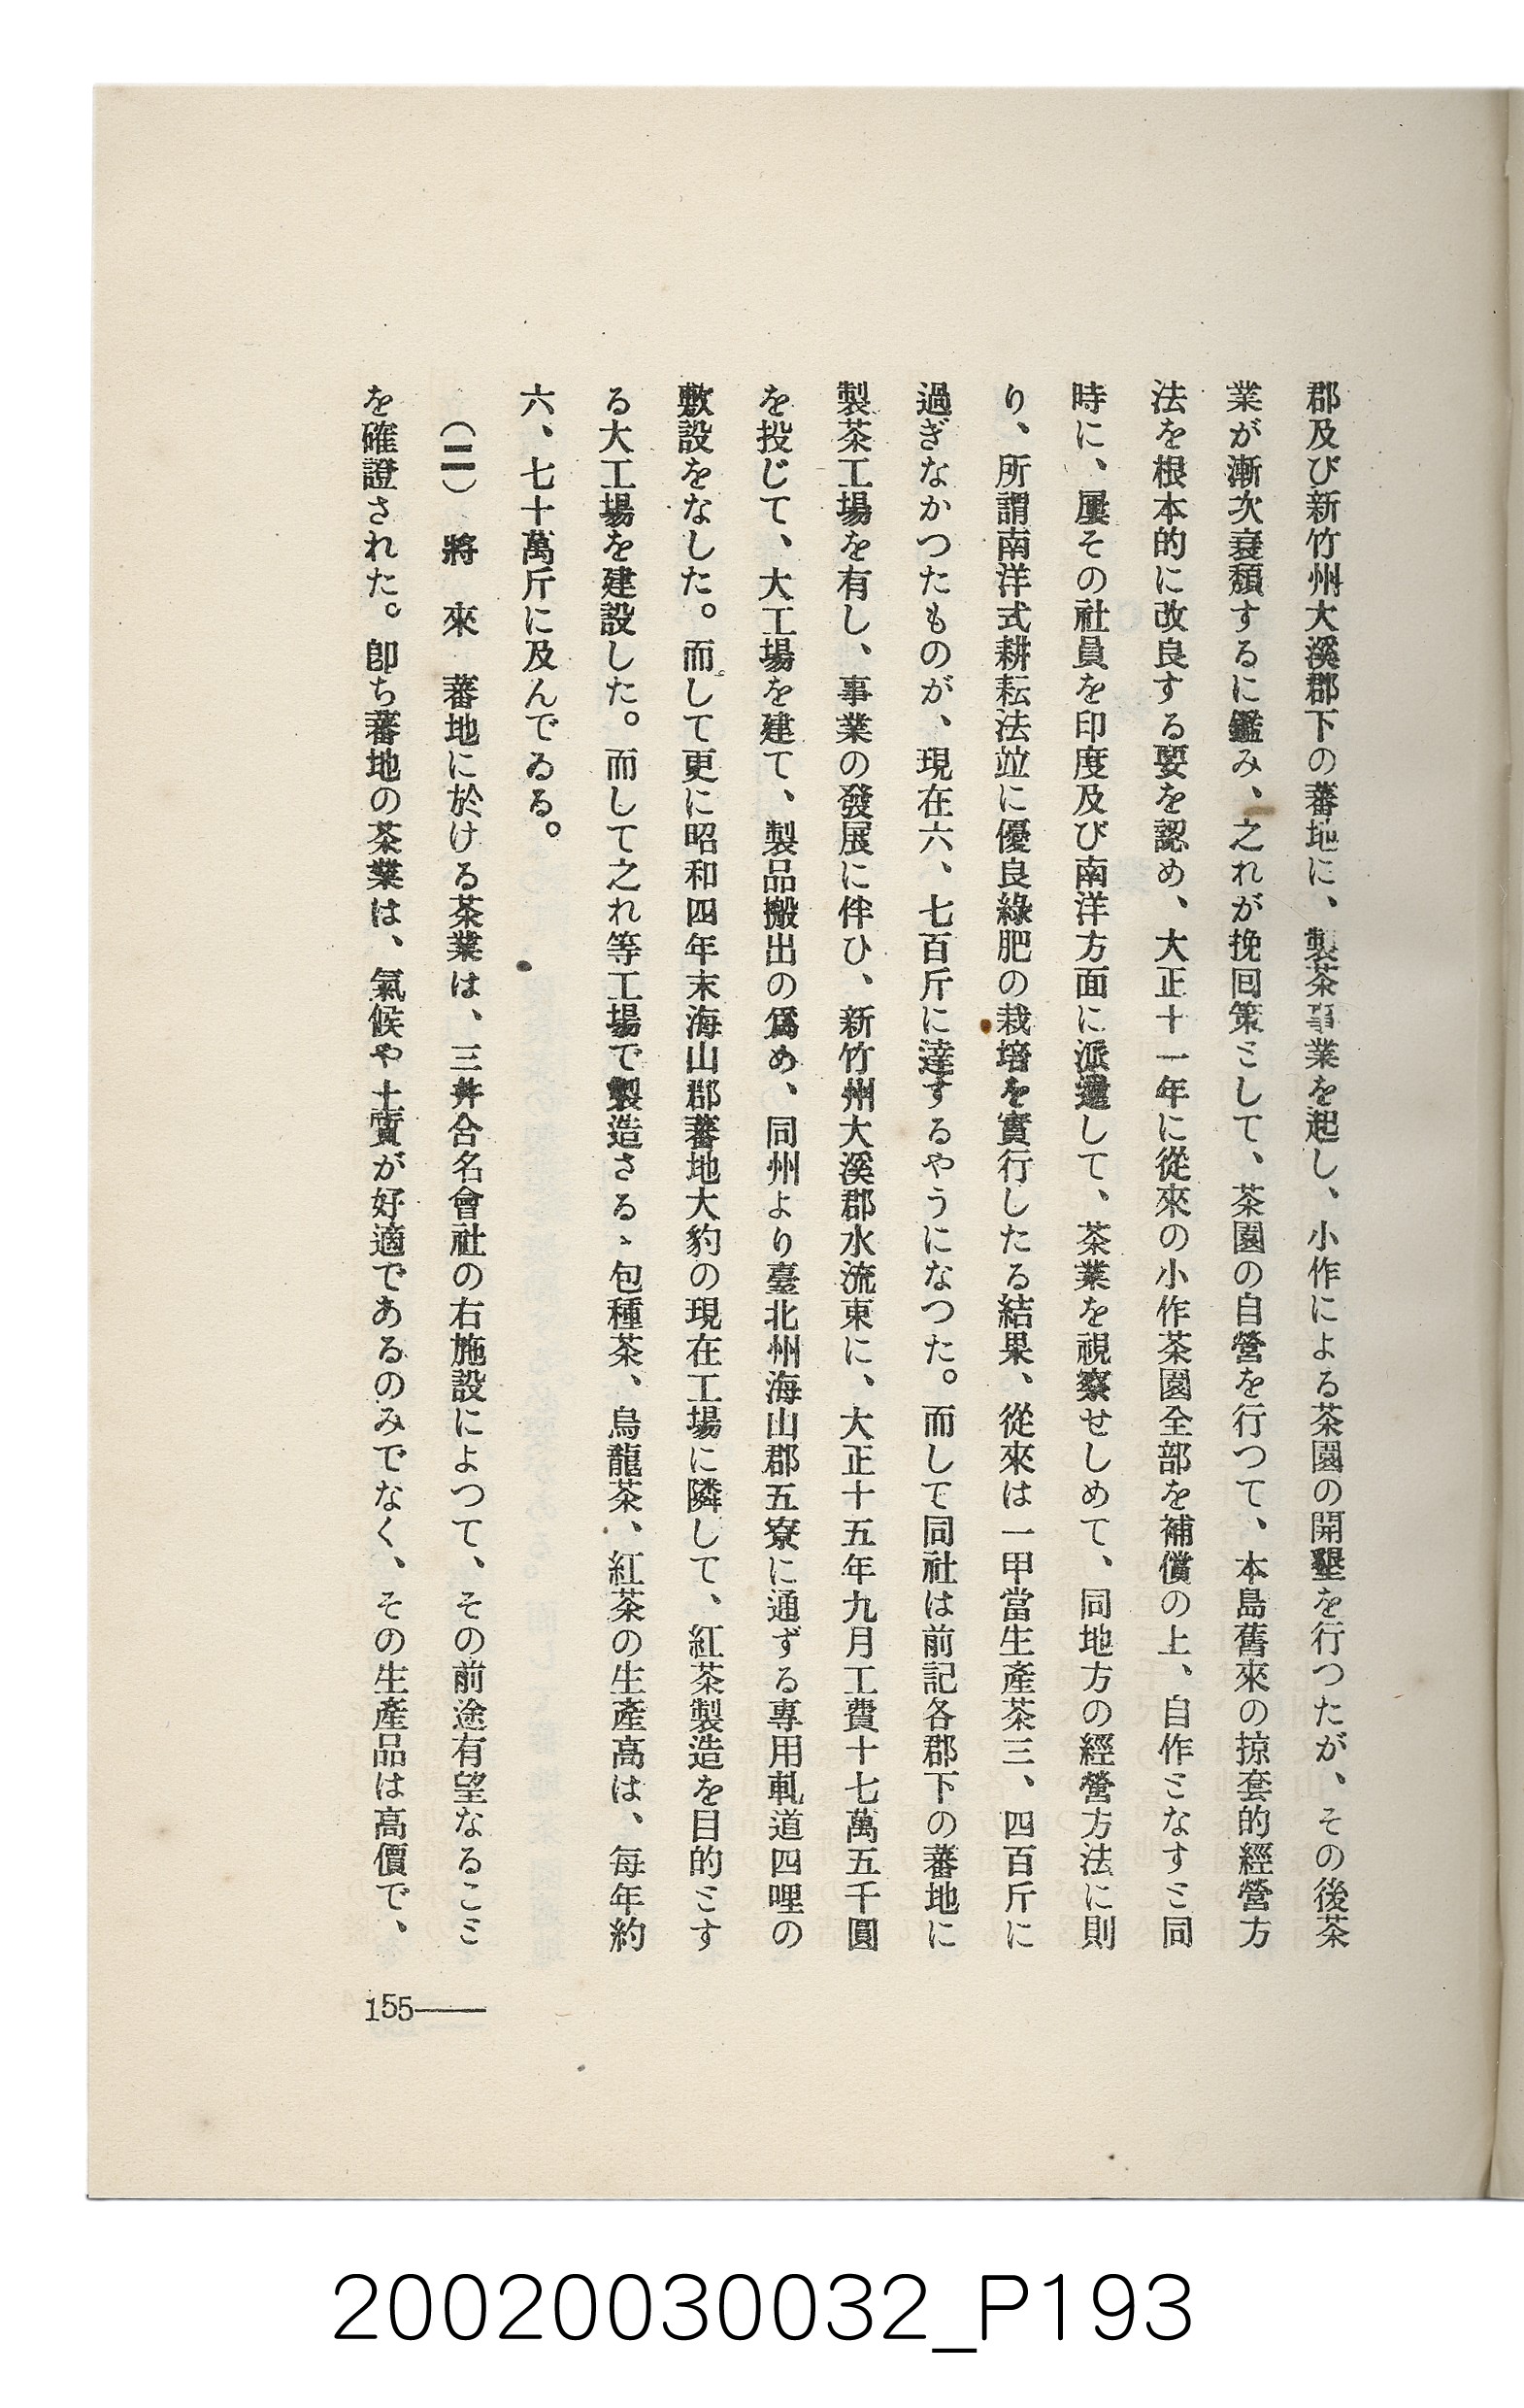 郡及び新竹州大溪郡下の蕃地に、製茶事業を起し、小作による茶園の開墾を行つたが、その後茶
業が漸次衰頽するに鑑み、之れが挽回策ミして、茶園の自營を行つて、本島舊來の掠奪的經營方
法を根本的に改良する要を認め、大正十一年に從來の小作茶園全部を補償の上、自作ミなすミ同
時に、屢その社員を印度及び南洋方面に派遣して、茶業を視察せしめて、同地方の經營方法に則
り、所謂南洋式耕耘法竝に優良綠肥の栽培を實行したる結果、從來は一甲當生產茶三、四百斤に
過ぎなかつたものが、現在六、七百斤に達するやうになつた。而して同社は前記各郡下の蕃地に
製茶工場を有し、事業の發展に伴ひ、新竹州大溪郡水流東に、大正十五年九月工費十七萬五千圓
を投じて、大工場を建て、製品搬出の爲め、同州より臺北州海山郡五寮に通ずる專用軌道四哩の
敷設をなした。而して更に昭和四年末海山郡蕃地大豹の現在工場に隣して、紅茶製造を目的ミす
る大工場を建設した。而して之れ等工場で製造さるゝ包種茶、烏龍茶、紅茶の生產高は、每年約
六、七十萬斤に及んでゐる。
（二）　將　來　蕃地に於ける茶業は、三井合名會社の右施設によつて、その前途有望なるこミ
を確證された。卽ち蕃地の茶業は、氣候や土質が好適であるのみでなく、その生產品は高價で、
155——
20020030032_P193